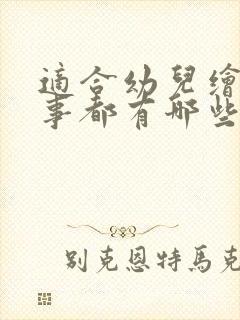 適合幼兒繪
事都有哪些
別克恩特馬克